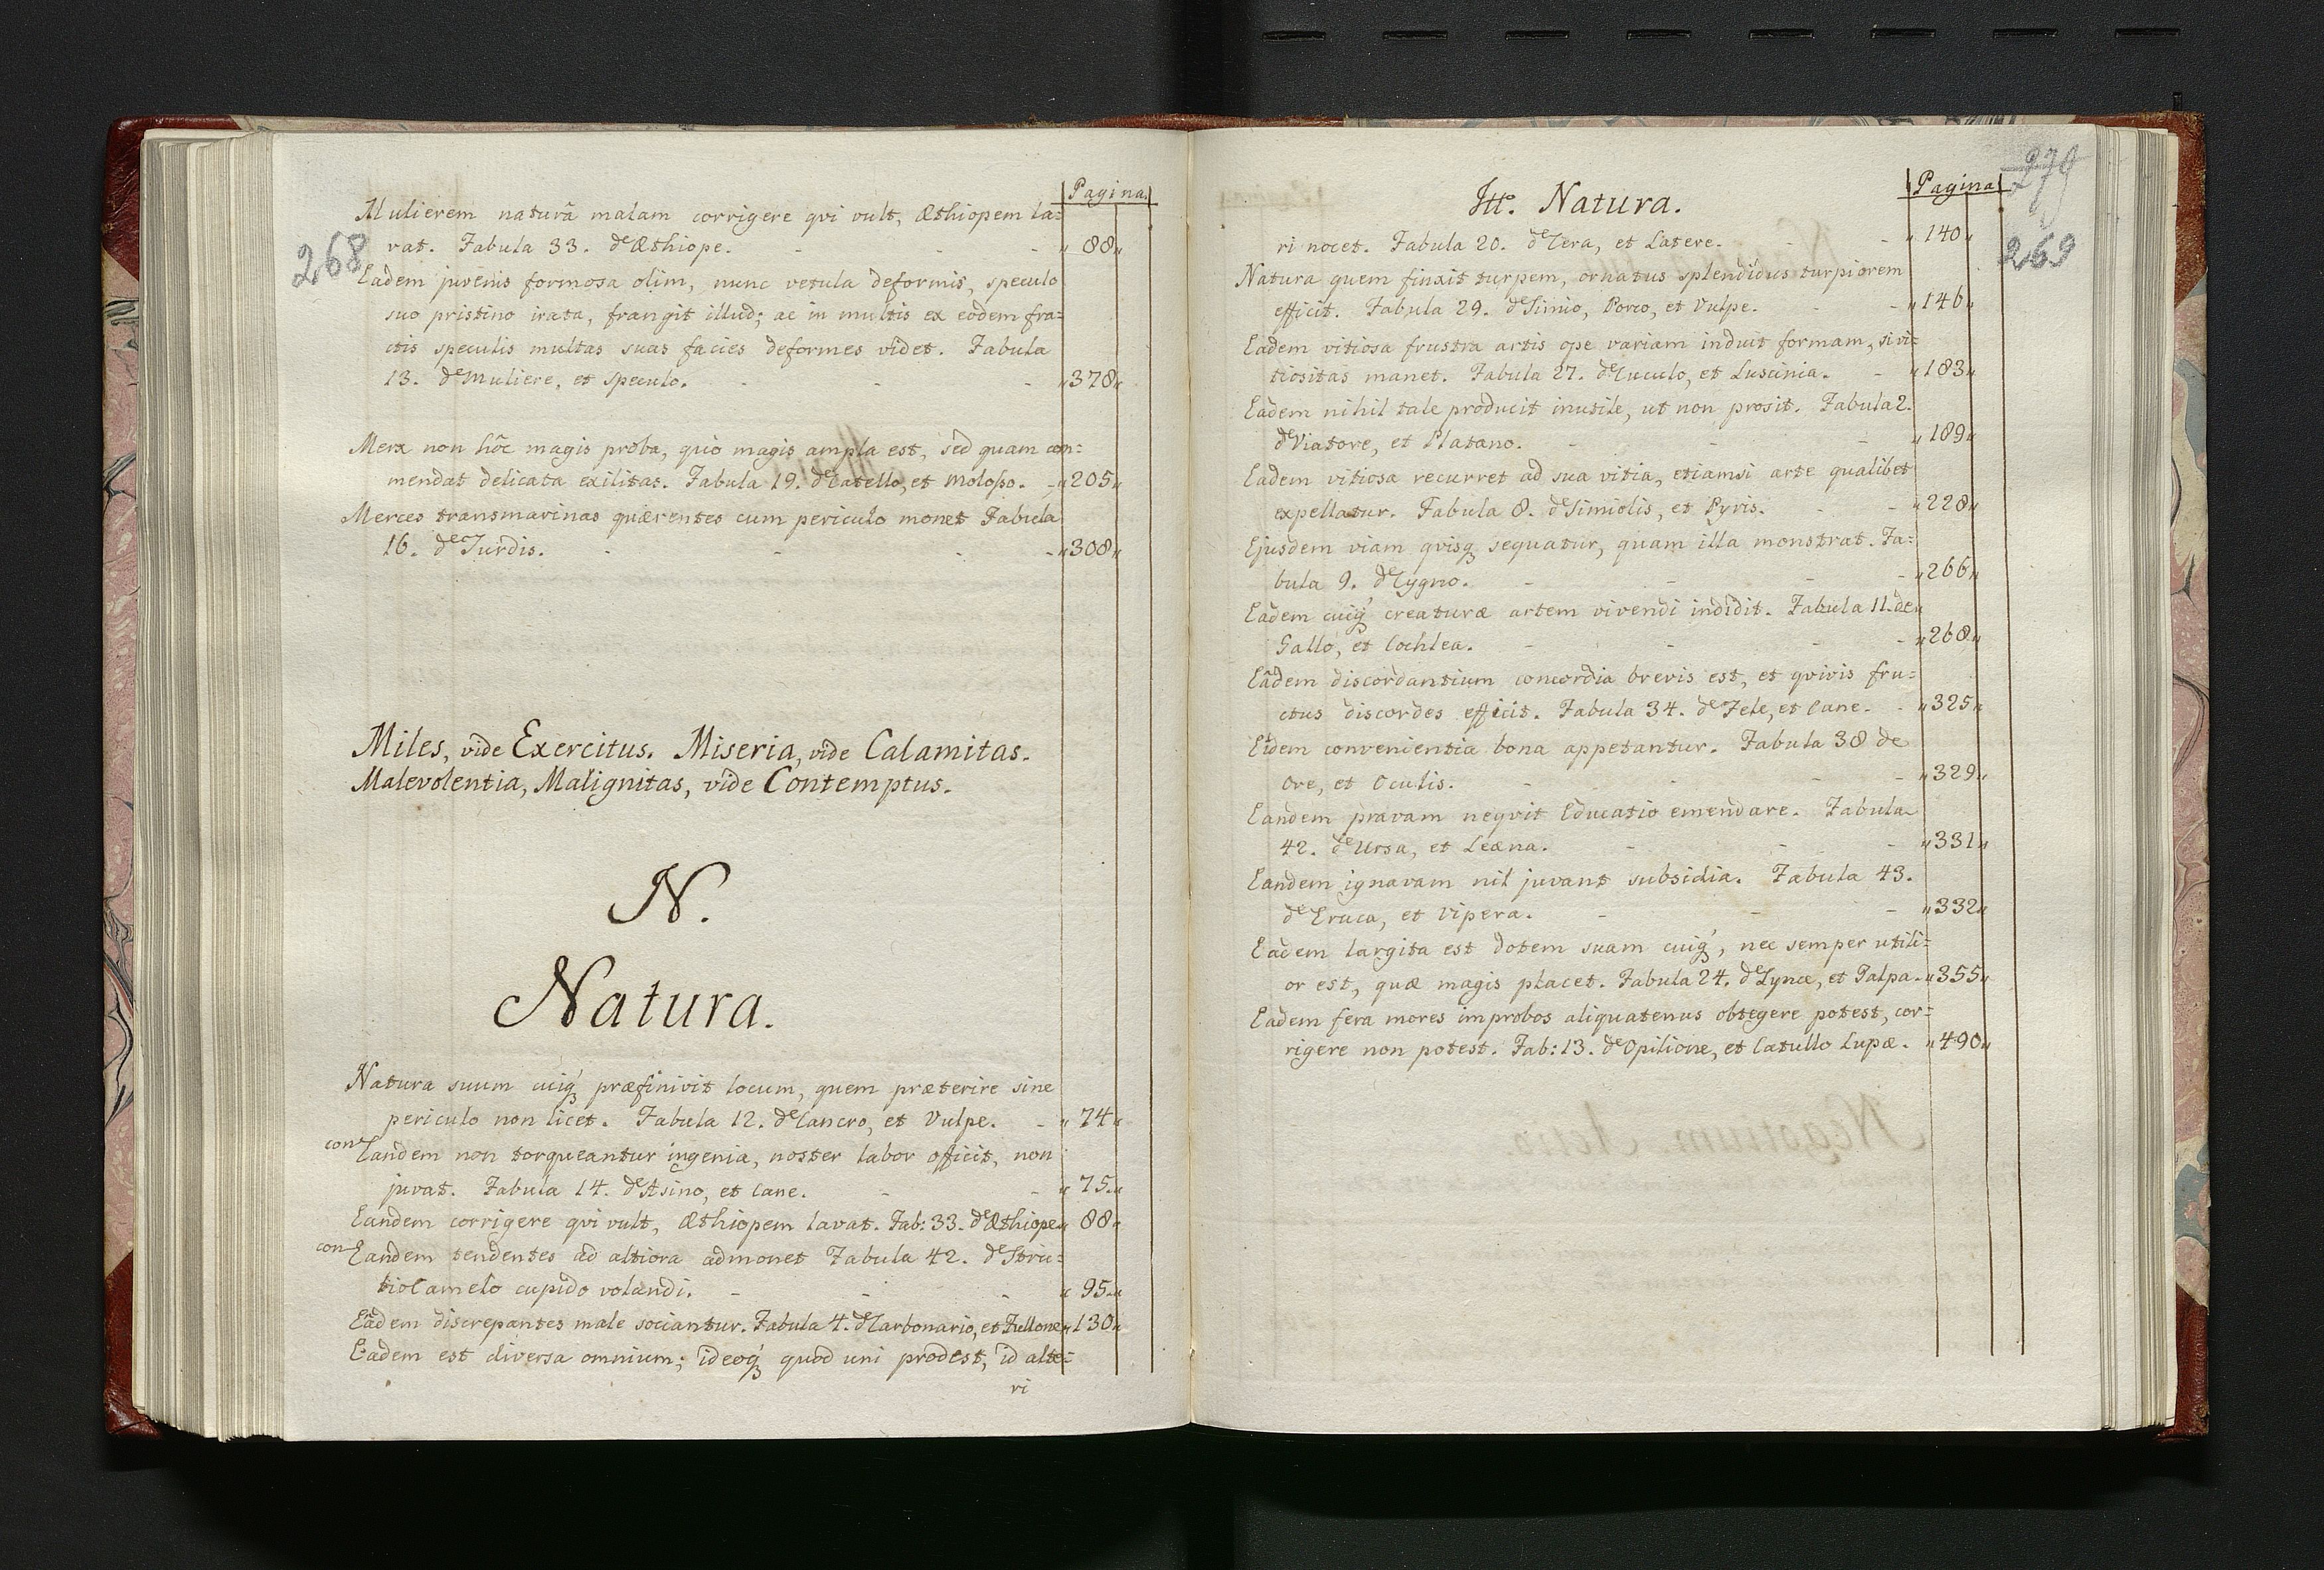 Pagina.
Mulierem naturâ malam corrigere qvi vult, Æthiopem la=
vat. Fabula 33. de Æthiope. - - - „ 88 „
268
Eadem juvenis formosa olim, nunc vetula deformis, speculo
suo pristino irata, frangit illud; ac in multis ex eodem fra=
ctis speculis multas suas facies deformes videt. Fabula
13. de Muliere, et speculo. - - - „ 378 „
Merx non hôc magis proba, quò magis ampla est, sed quam com=
mendat delicata exilitas. Fabula 19. de Catello, et Molosso. - „ 205 „
Merces transmarinas quærentes cum periculo monet Fabula
16. de Turdis. - - - - „ 308 „
Miles, vide Exercitus. Miseria, vide Calamitas.
Malevolentia, Malignitas, vide Contemptus.
N.
Natura.
Natura suum cuiq; præfinivit locum, quem præterire sine
periculo non licet. Fabula 12. de Cancro, et Vulpe. - „ 74 „
con Eandem non torqueantur ingenia, noster labor officit, non
juvat. Fabula 14. de Asino, et Cane. - - „ 75 „
Eandem corrigere qvi vult, Æthiopem lavat. Fab: 33. de Æthiope „ 88 „
con Eandem tendentes ad altiora admonet Fabula 42. de Stru=
tioCamelo cupido volandi. - - - „ 95 „
Eâdem discrepantes male sociantur. Fabula 4. de Carbonario, et Fullone „ 130 „
Eadem est diversa omnium; ideoq; quod uni prodest, id alte=
ri
Itē. Natura.
Pagina
279
269
ri nocet. Fabula 20. de Cera, et Latere. - - „ 140 „
Natura quem finxit turpem, ornatus splendidus turpiorem
efficit. Fabula 29. de Simio, Porco, et Vulpe. - - „ 146 „
Eadem vitiosa frustra artis ope variam induit formam, si vi=
tiositas manet. Fabula 27. de Cuculo, et Luscinia. - „ 183 „
Eadem nihil tale producit inutile, ut non prosit. Fabula 2.
de Viatore, et Platano. - - - „ 189 „
Eadem vitiosa recurret ad sua vitia, etiamsi arte qualibet
expellatur. Fabula 8. de Simiolis, et Pyris. - - „ 228 „
Ejusdem viam qvisq; sequatur, quam illa monstrat. Fa=
bula 9. de Cygno. - - - - „ 266 „
Eadem cuiq; creaturæ artem vivendi indidit. Fabula 11. de
Gallo, et Cochlea. - - - - „ 268 „
Eâdem discordantium concordia brevis est, et qvivis fru=
ctus discordes efficit. Fabula 34. de Fele, et Cane. - „ 325 „
Eidem convenientia bona appetantur. Fabula 38 de
Ore, et Oculis. - - - - „ 329 „
Eandem pravam neqvit Educatio emendare. Fabula
42. de Ursa, et Leæna. - - - „ 331 „
Eandem ignavam nil juvant subsidia. Fabula 43.
de Eruca, et Vipera. - - - „ 332 „
Eadem largita est dotem suam cuiq;, nec semper utili=
or est, quæ magis placet. Fabula 24. de Lynce, et Talpa. „ 355 „
Eadem fera mores improbos aliquatenus obtegere potest, cor=
rigere non potest. Fab: 13. de Opilione, et Catullo Lupæ. „ 490 „